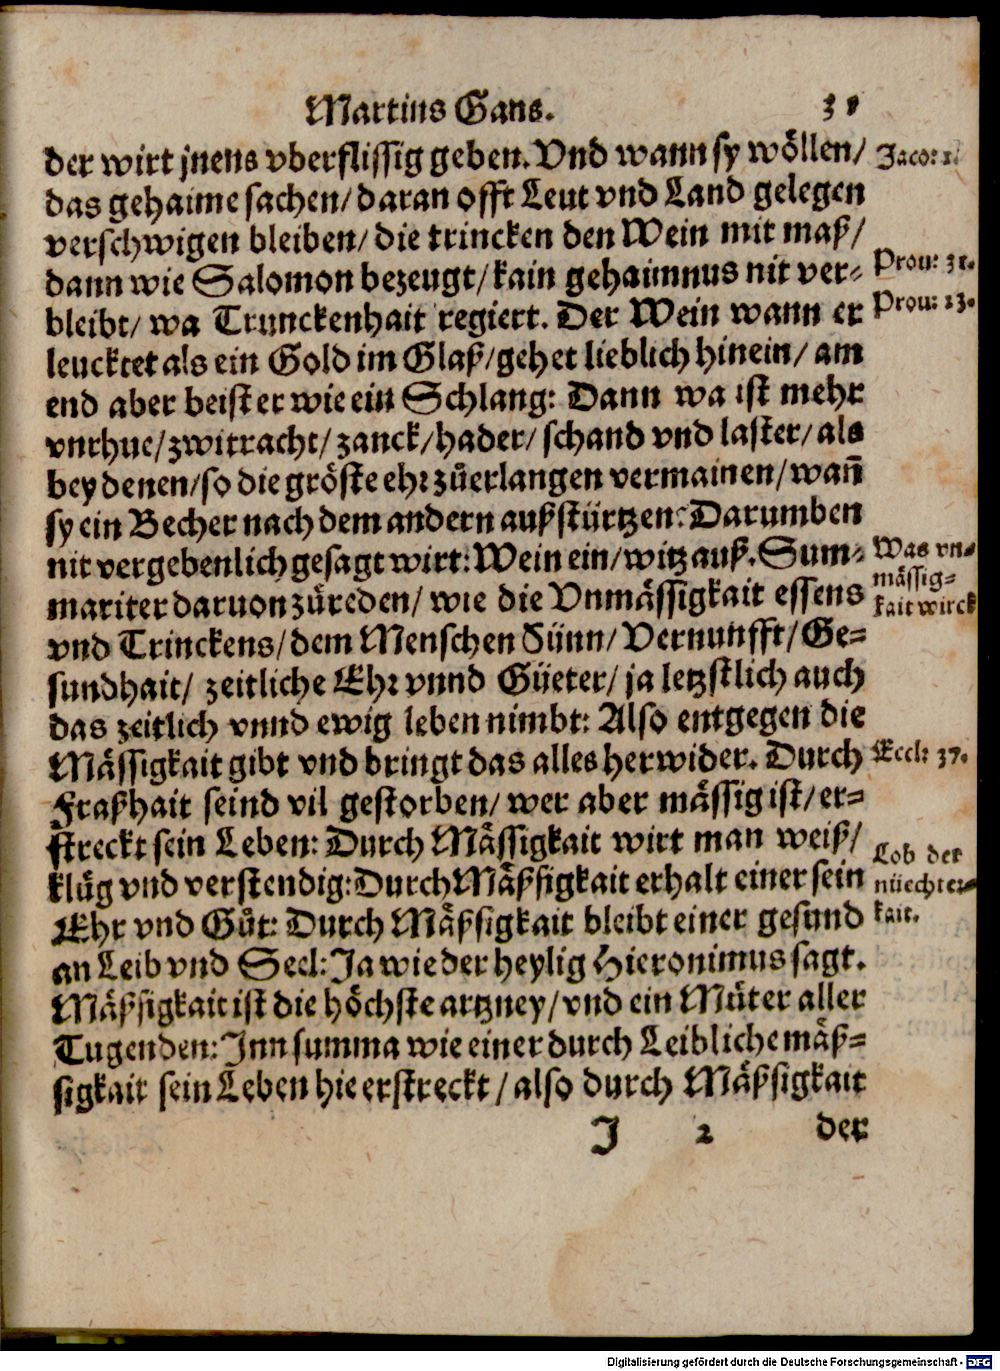 Martins Gans. 31
der wirt jnens vberflissig geben. Vnd wann sy wöllen/
Jaco: 1.
das gehaime sachen/ daran offt Leut vnd Land gelegen
verschwigen bleiben/ die trincken den Wein mit maß/
dann wie Salomon bezeugt/ kain gehaimnus nit ver-
Prou: 31.
bleibt/ wa Trunckenhait regiert. Der Wein wann er
Prou: 23.
leucktet als ein Gold im Glaß/ gehet lieblich hinein/ am
end aber beist er wie ein Schlang: Dann wa ist mehr
vnrhue/ zwitracht/ zanck/ hader/ schand vnd laster/ als
bey denen/ so die gröste ehr züerlangen vermainen/ wañ
sy ein Becher nach dem andern außstürtzen: Darumben
nit vergebenlich gesagt wirt: Wein ein/ witz auß. Sum-
Was vn-
mässig-
kait wirck
mariter daruon züreden/ wie die Vnmässigkait essens
vnd Trinckens/ dem Menschen Sünn/ Vernunfft/ Ge-
sundhait/ zeitliche Ehr vnnd Güeter/ ja letzstlich auch
das zeitlich vnnd ewig leben nimbt: Also entgegen die
Mässigkait gibt vnd bringt das alles herwider. Durch
Eccl: 37.
Fraßhait seind vil gestorben/ wer aber mässig ist/ er-
streckt sein Leben: Durch Mässigkait wirt man weiß/
Lob der
nüechter-
kait.
klüg vnd verstendig: Durch Mäßsigkait erhalt einer sein
Ehr vnd Güt: Durch Mäßsigkait bleibt einer gesund
an Leib vnd Seel: Ja wie der heylig Hieronimus sagt.
Mäßsigkait ist die höchste artzney/ vnd ein Müter aller
Tugenden: Inn summa wie einer durch Leibliche mäß-
sigkait sein Leben hie erstreckt/ also durch Mäßsigkait
J 2 der
Digitalisierung gefördert durch die Deutsche Forschungsgemeinschaft - DFG